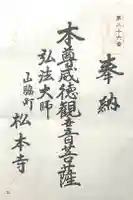 第二十六番
奉納
本尊感徳観音菩薩
弘法大師
山脇町
松本寺